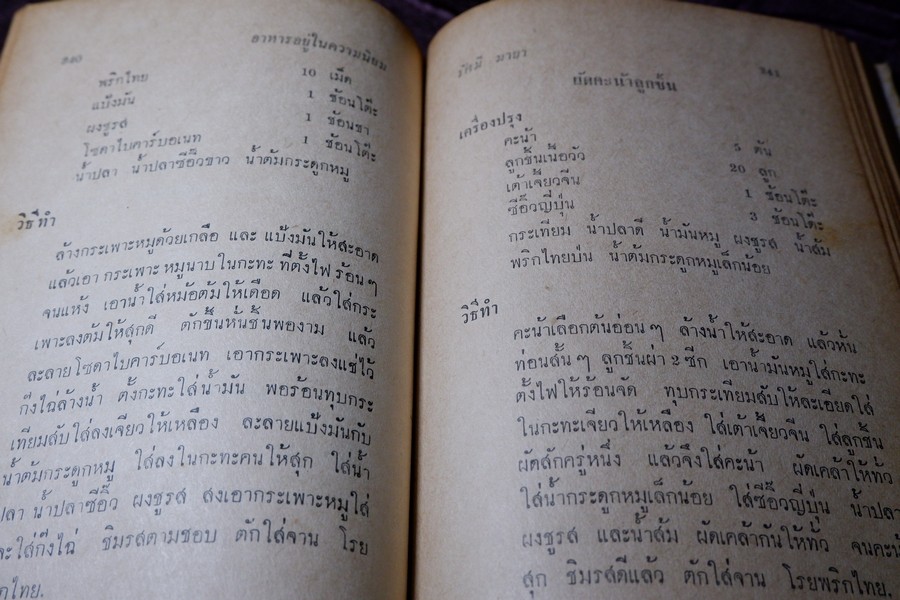 340
อาหารอยู่ในความนิยม
พริกไทย 10 เม็ด
แป้งมัน 1 ช้อนโต๊ะ
ผงชูรส 1 ช้อนชา
โซดาไบคาร์บอเนท 1 ช้อนโต๊ะ
น้ำปลา น้ำปลาซีอิ๊วขาว น้ำต้มกระดูกหมู
วิธีทำ
ล้างกระเพาะหมูด้วยเกลือ และ แป้งมันให้สะอาด
แล้วเอา กระเพาะ หมูนาบในกะทะ ที่ตั้งไฟ ร้อน ๆ
จนแห้ง เอาน้ำใส่หม้อต้มให้เดือด แล้วใส่กระ
เพาะลงต้มให้สุกดี ตักขึ้นหั่นชิ้นพองาม แล้ว
ละลายโซดาไบคาร์บอเนท เอากระเพาะลงแช่ไว้
กึ๋งไฉ่ล้างน้ำ ตั้งกะทะใส่น้ำมัน พอร้อนทุบกระ
เทียมสับใส่ลงเจียวให้เหลือง ละลายแป้งมันกับ
น้ำต้มกระดูกหมู ใส่ลงในกะทะคนให้สุก ใส่น้ำ
ปลา น้ำปลาซีอิ๊ว ผงชูรส ส่งเอากระเพาะหมูใส่
และใส่กึ๋งไฉ่ ชิมรสตามชอบ ตักใส่จาน โรย
กไทย.
รัศมี มายา
341
ผัดคะน้าลูกชิ้น
เครื่องปรุง
คะน้า 5 ต้น
ลูกชิ้นเนื้อวัว 20 ลูก
เต้าเจี้ยวจีน 1 ช้อนโต๊ะ
ซีอิ๊วญี่ปุ่น 3 ช้อนโต๊ะ
กระเทียม น้ำปลาดี น้ำมันหมู ผงชูรส น้ำส้ม
พริกไทยป่น น้ำต้มกระดูกหมูเล็กน้อย
วิธีทำ
คะน้าเลือกต้นอ่อน ๆ ล้างน้ำให้สะอาด แล้วหั่น
ท่อนสั้น ๆ ลูกชิ้นผ่า 2 ซีก เอาน้ำมันหมูใส่กะทะ
ตั้งไฟให้ร้อนจัด ทุบกระเทียมสับให้ละเอียดใส่
ในกะทะเจียวให้เหลือง ใส่เต้าเจี้ยวจีน ใส่ลูกชิ้น
ผัดสักครู่หนึ่ง แล้วจึงใส่คะน้า ผัดเคล้าให้ทั่ว
ใส่น้ำกระดูกหมูเล็กน้อย ใส่ซีอิ๊วญี่ปุ่น น้ำปลา
ผงชูรส และน้ำส้ม ผัดเคล้ากันให้ทั่ว จนคะน้า
สุก ชิมรสดีแล้ว ตักใส่จาน โรยพริกไทย.